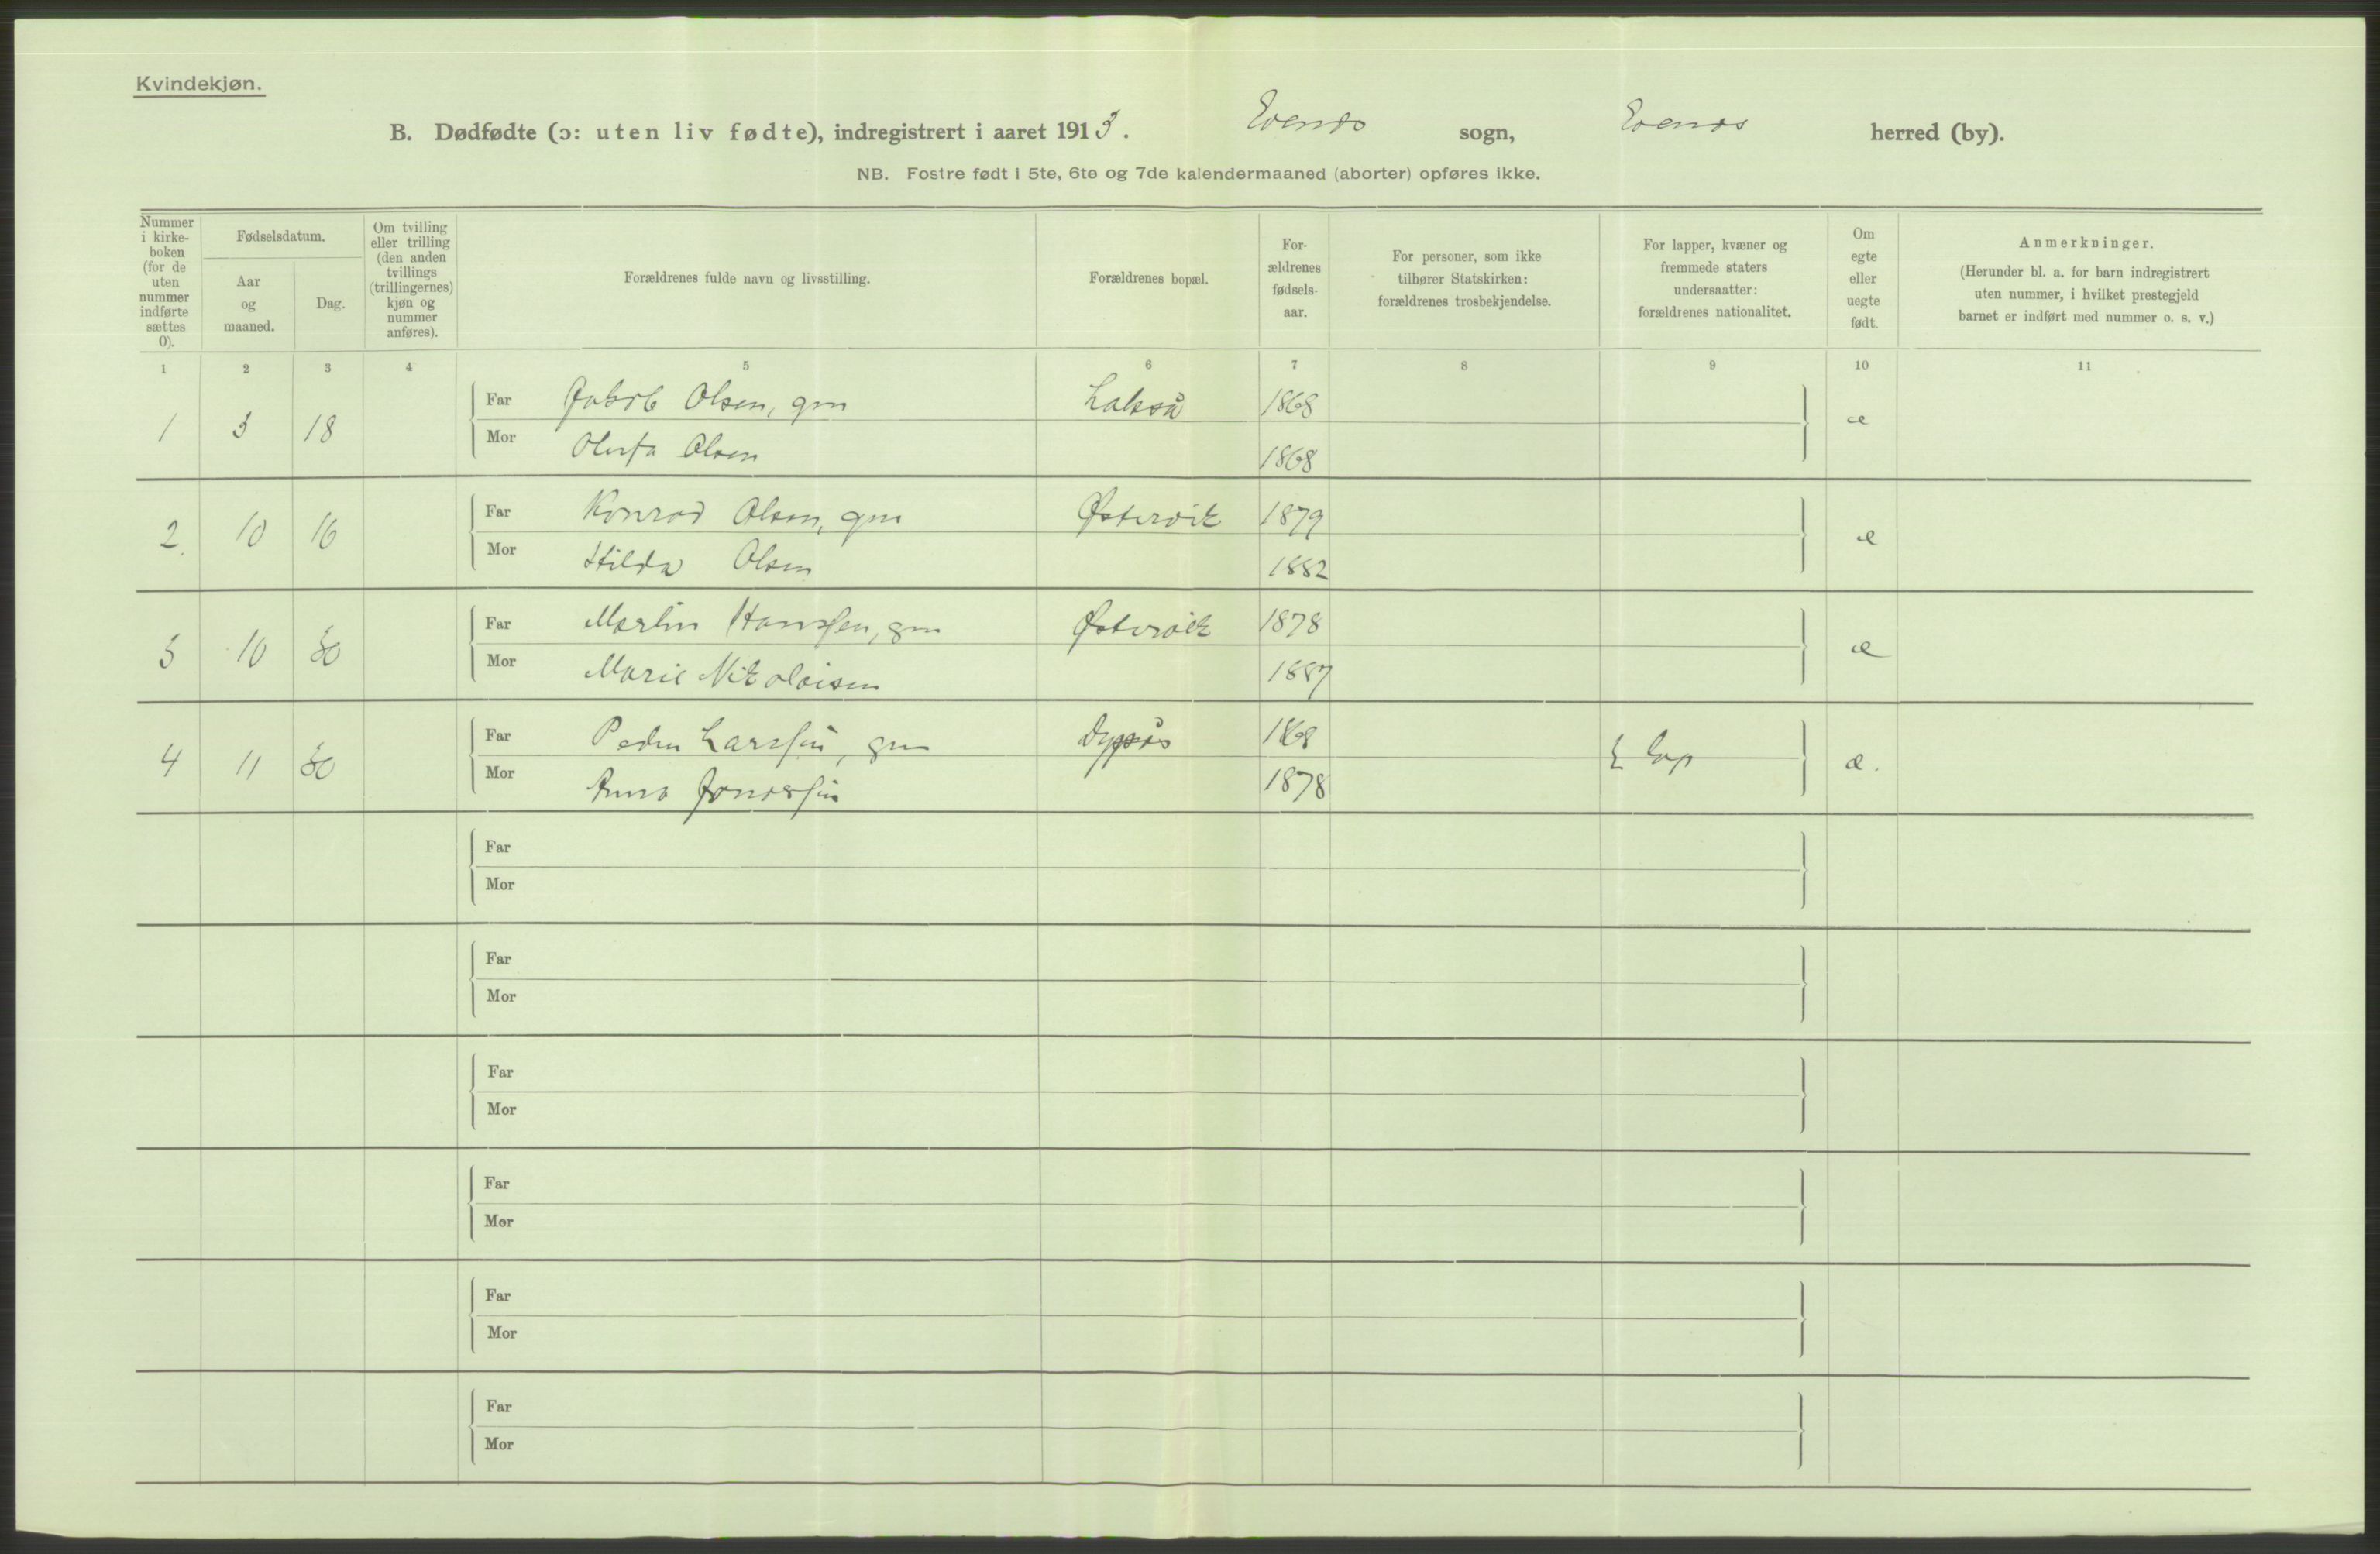 Kvindekjøn.
B. Dødfødte (ɔ: uten liv fødte), indregistrert i aaret 1913. Evenes sogn, Evenes herred (by).
NB. Fostre født i 5te, 6te og 7de kalendermaaned (aborter) opføres ikke.
Nummer i kirke-boken (for de uten nummer indførte sættes 0).
Fødselsdatum.
Aar og maaned.
Dag.
Om tvilling eller trilling (den anden tvillings (trillingernes) kjøn og nummer anføres).
Forældrenes fulde navn og livsstilling.
Forældrenes bopæl.
For-ældrenes fødsels-aar.
For personer, som ikke tilhører Statskirken: forældrenes trosbekjendelse.
For lapper, kvæner og fremmede staters undersaatter: forældrenes nationalitet.
Om egte eller uegte født.
Anmerkninger.
(Herunder bl. a. for barn indregistrert uten nummer, i hvilket prestegjeld barnet er indført med nummer o. s. v.)
1 2 3 4 5 6 7 8 9 10 11
1 3 18 Far Jakob Olsen, gm Lakså 1868 æ
Mor Olufa Olsen 1868
2 10 16 Far Konrad Olsen, gm Østervik 1879 æ
Mor Hilda Olsen 1882
3 10 30 Far Martin Hanssen, gm Østervik 1878 æ
Mor Marie Nikolaisen 1887
4 11 30 Far Peder Larssen, gm 1868 Lap æ.
Mor Anna Jonassen 1878
Far
Mor
Far
Mor
Far
Mor
Far
Mor
Far
Mor
Far
Mor